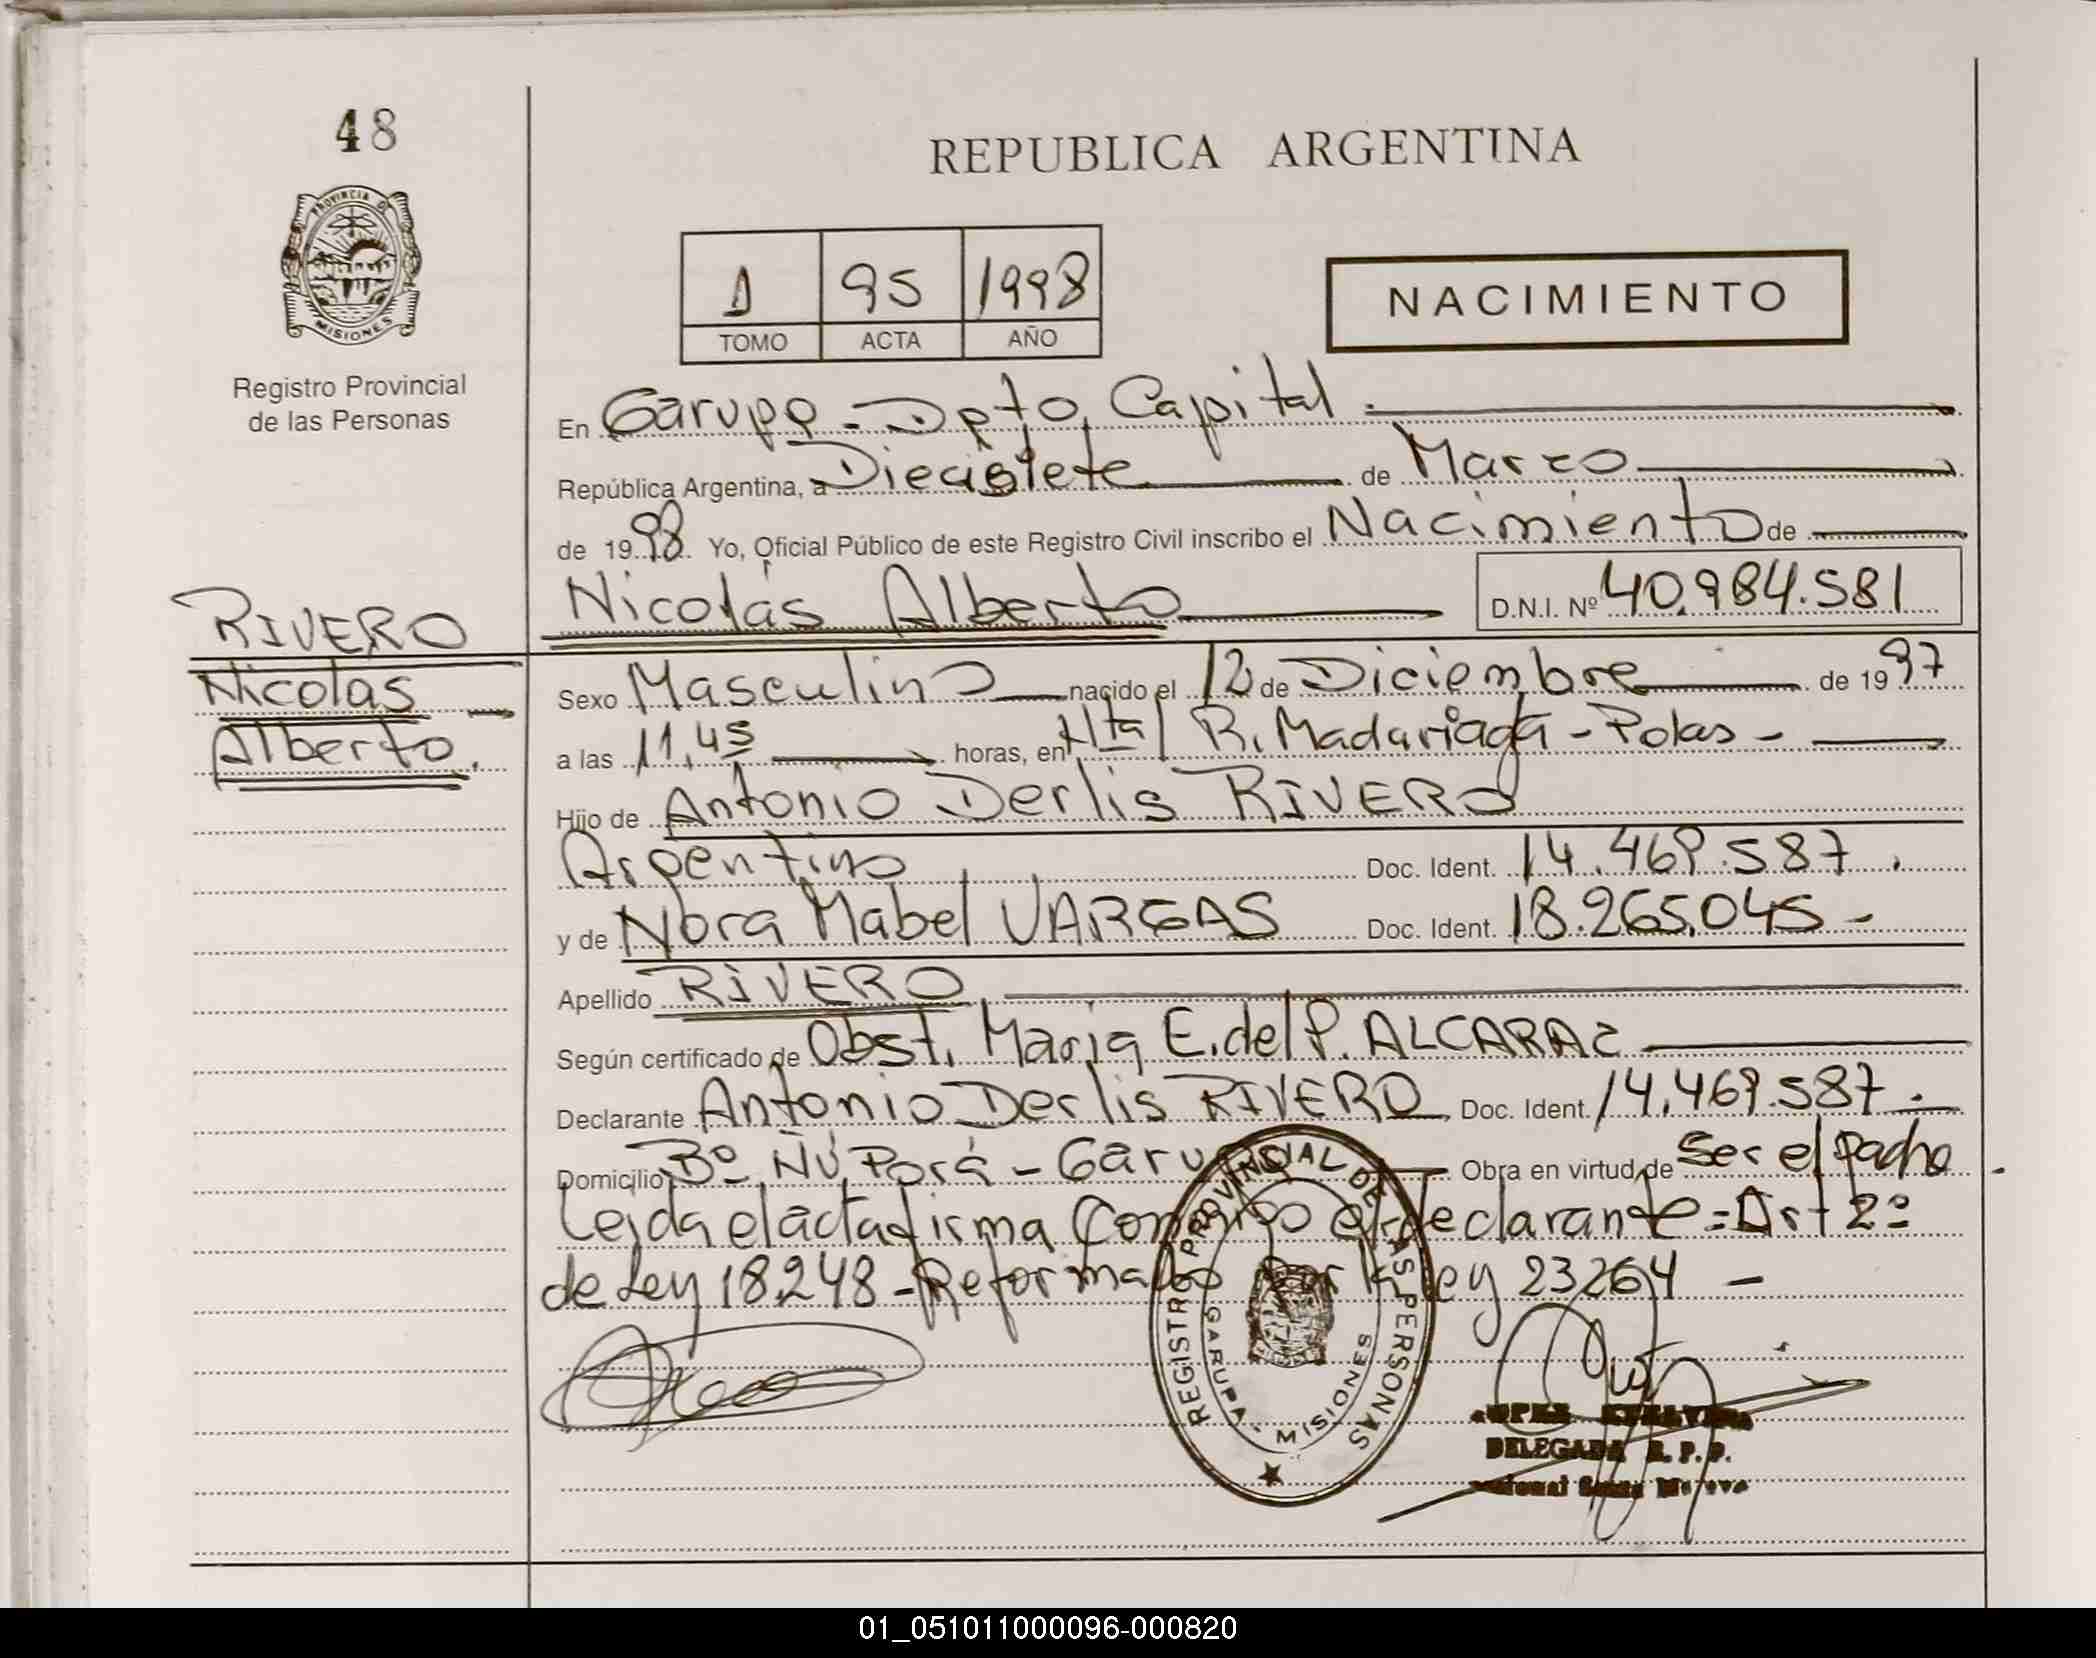 48
PROVINCIA DE
MISIONES
Registro Provincial
de las Personas
RIVERO
Nicolas
Alberto.
REPUBLICA ARGENTINA
1 95 1998
TOMO ACTA AÑO
NACIMIENTO
En Garupa - Dpto, Capital.
República Argentina, a Diecisiete de Marzo
de 1998. Yo, Oficial Público de este Registro Civil inscribo el Nacimiento de
Nicolás Alberto D.N.I. Nº 40.984.581
Sexo Masculino nacido el 12 de Diciembre de 1997
a las 11,45 horas, en Htal R. Madariaga - Pdas -
Hijo de Antonio Derlis RIVERO
Argentino Doc. Ident. 14.469.587.
y de Nora Mabel VARGAS Doc. Ident. 18.265.045 -
Apellido RIVERO
Según certificado de Obst. Maria E. del P. ALCARAZ
Declarante Antonio Derlis RIVERO Doc. Ident. 14.469.587.
Domicilio Bº Ñú Porá - Garu Obra en virtud de Ser el padre
Leida el acta firma Conmigo el declarante = Art 2º
de Ley 18.248 - Reformado por la Ley 23264 -
REGISTRO PROVINCIAL DE LAS PERSONAS
GARUPA - MISIONES
DELEGADA R. P. P.
01_051011000096-000820